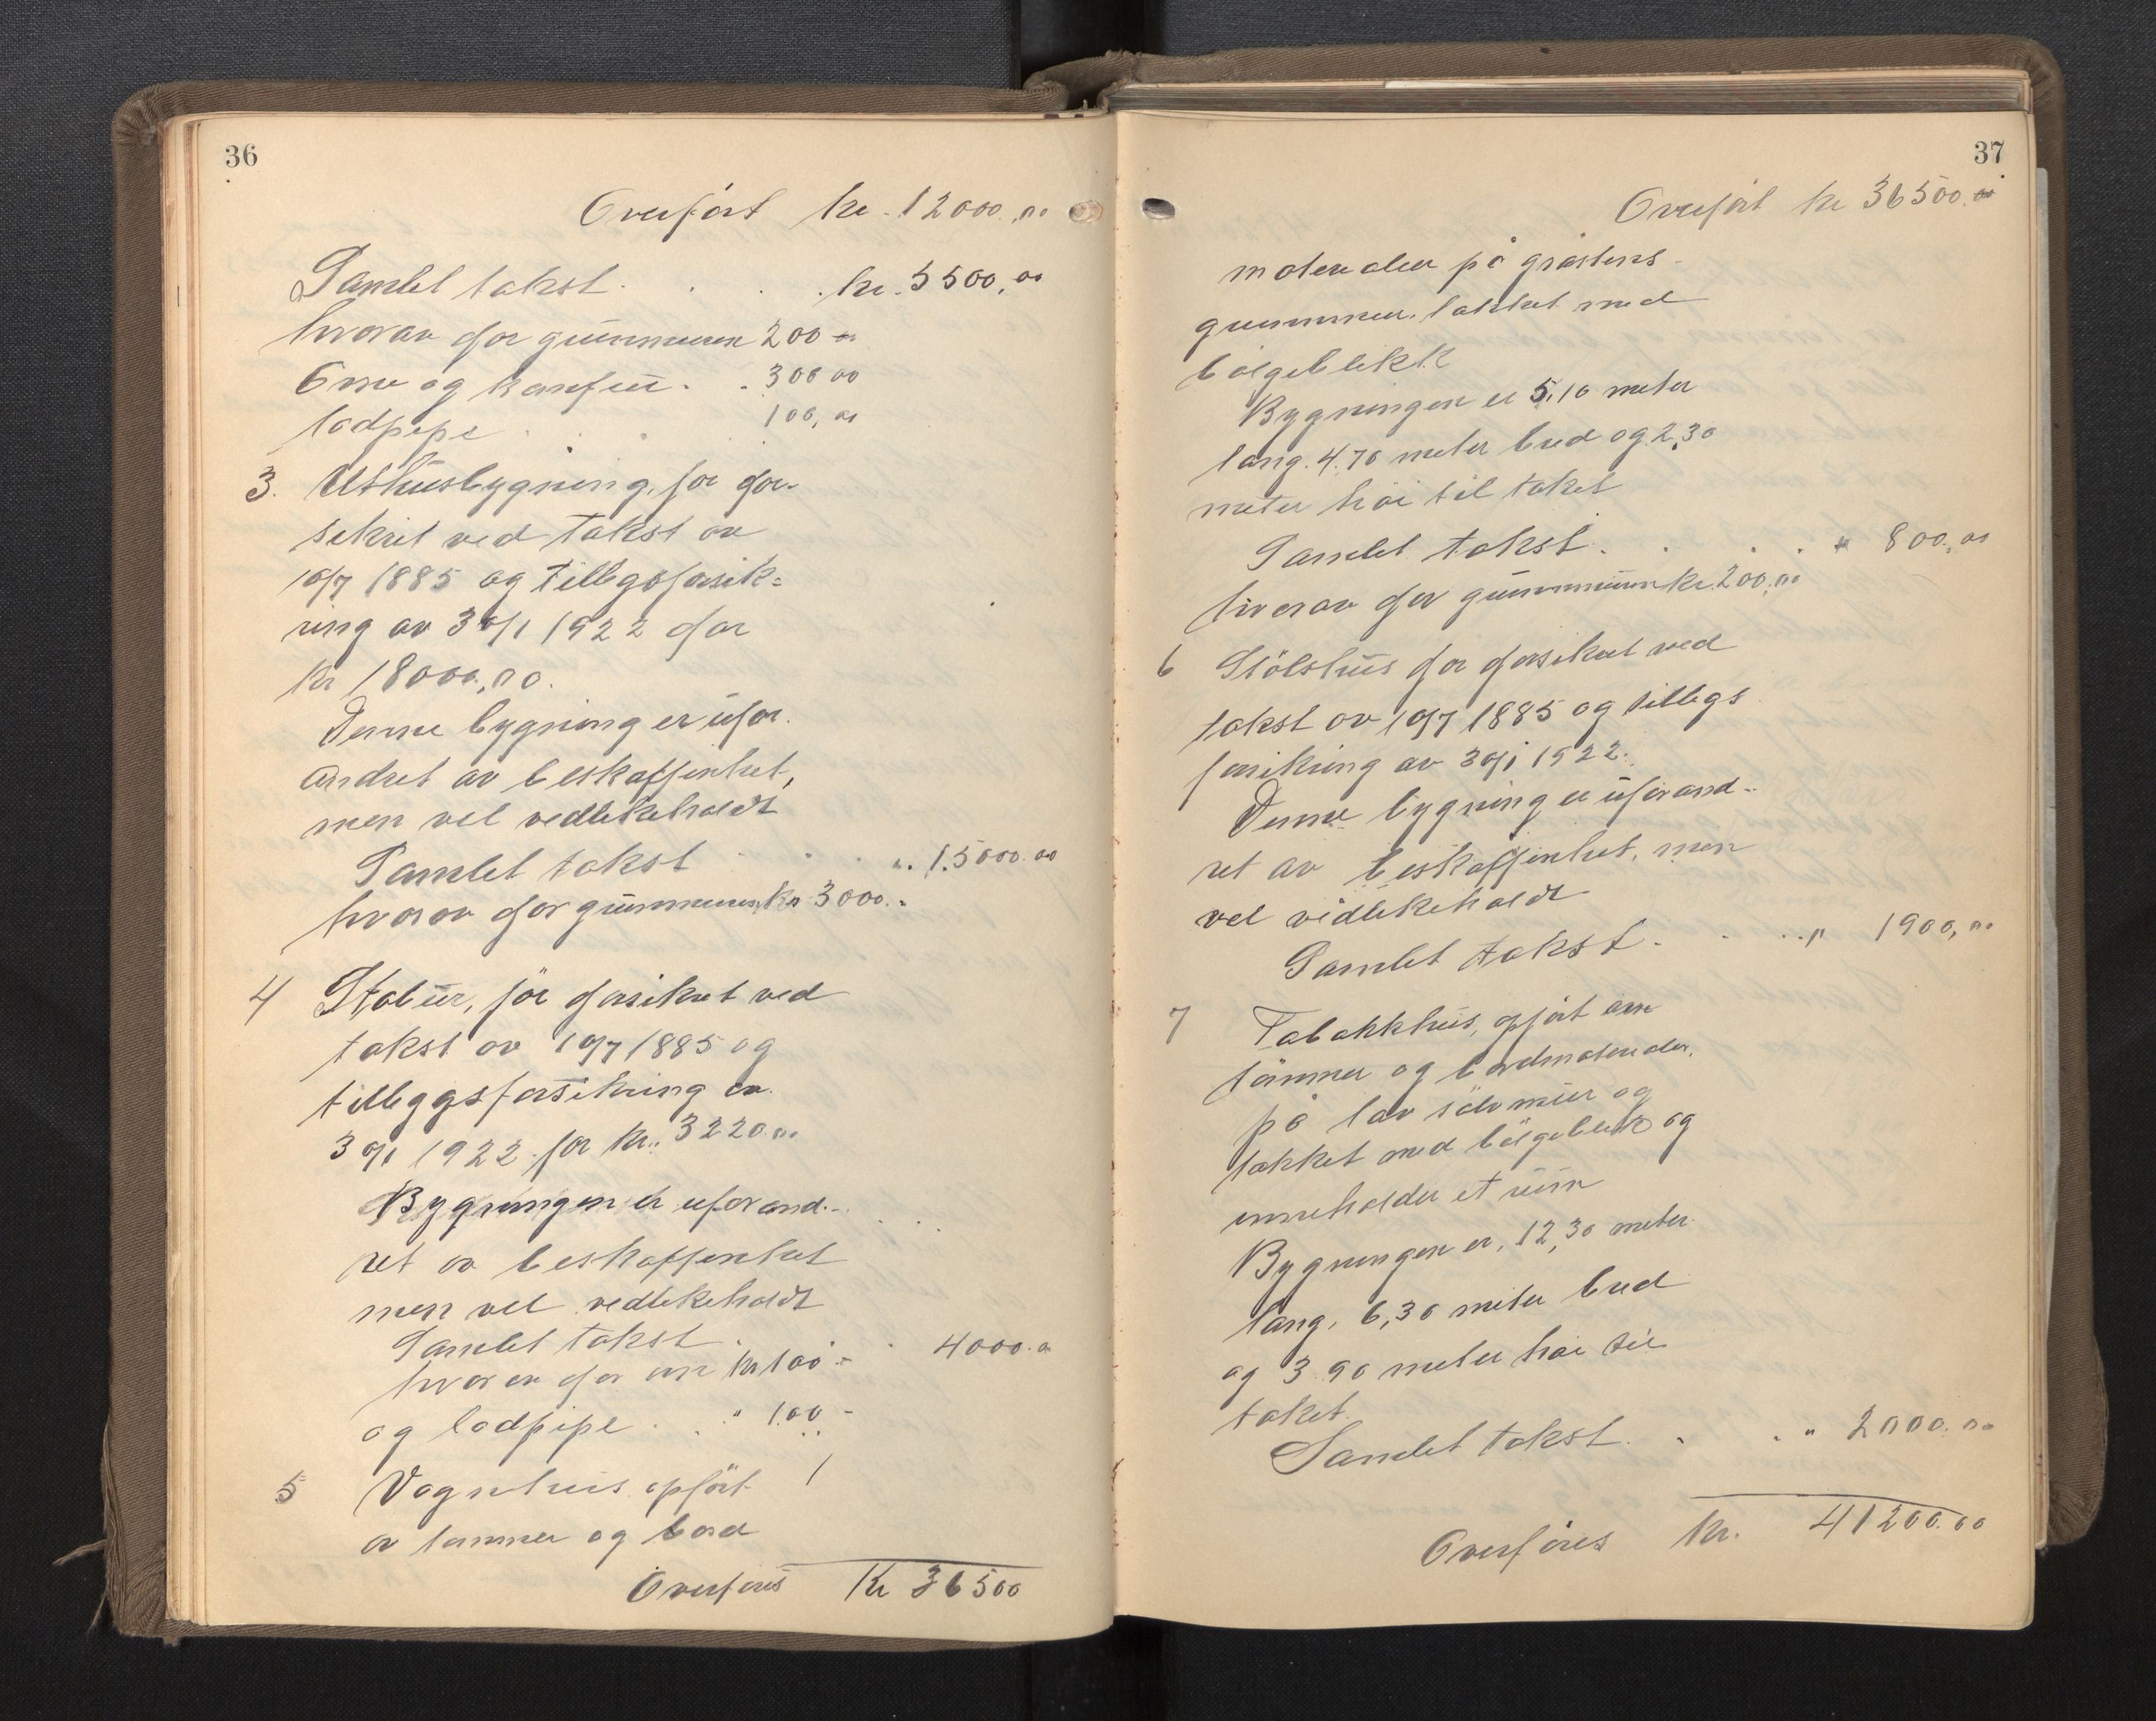 36
Overført kr. 12000,00
Samlet takst . . . kr. 5500,00
hvorav for grunnmuren 200 -
Ovne og komfur . . 300 00
lodpipe . . . 100,00
3. Uthusbygning, før for-
sikret ved takst av
10/7 1885 og tillegsforsik-
ring av 30/1 1922 for
kr 18000,00.
Denne bygning er ufor-
andret av beskaffenhet,
men vel vedlikeholdt
Samlet takst . . . „ 15000.00
hvorav for grunnmuren kr 3000.-
4 Stabur, før forsikret ved
takst av 10/7 1885 og
tilleggsforsikring av
30/1 1922 for kr. 3220.00
Bygningen er uforand-
ret av beskaffenhet
men vel vedlikeholdt
Samlet takst . . 4000.00
hvorav for ovn kr 100 -
og lodpipe . . " 100 -
5 Vognhus opført
av tømmer og bord
Overføres Kr 36500
37
Overført kr 36500.00
materialer på gråstens-
grunnmur, takket med
bølgeblikk
Bygningen er 5,10 meter
lang. 4.70 meter bred og 2,30
meter høi til taket
Samlet takst . . . . " 800,00
hvorav for grunnmuren kr. 200,00
6 Stölshus før forsikret ved
takst av 10/7 1885 og tillegs
forsikring av 30/1 1922.
Denne bygning er uforand-
ret av beskaffenhet, men
vel vedlikeholdt
Samlet takst . . . . " 1900,00
7 Tabakkhus, opført av
tømmer og bordmaterialer,
på lav
takket med bølgeblikk og
inneholder et rum
Bygningen er, 12,30 meter
lang, 6,30 meter bred
og 3.90 meter høi til
taket.
Samlet takst . . . " 2000.00
Overføres kr. 41200.00